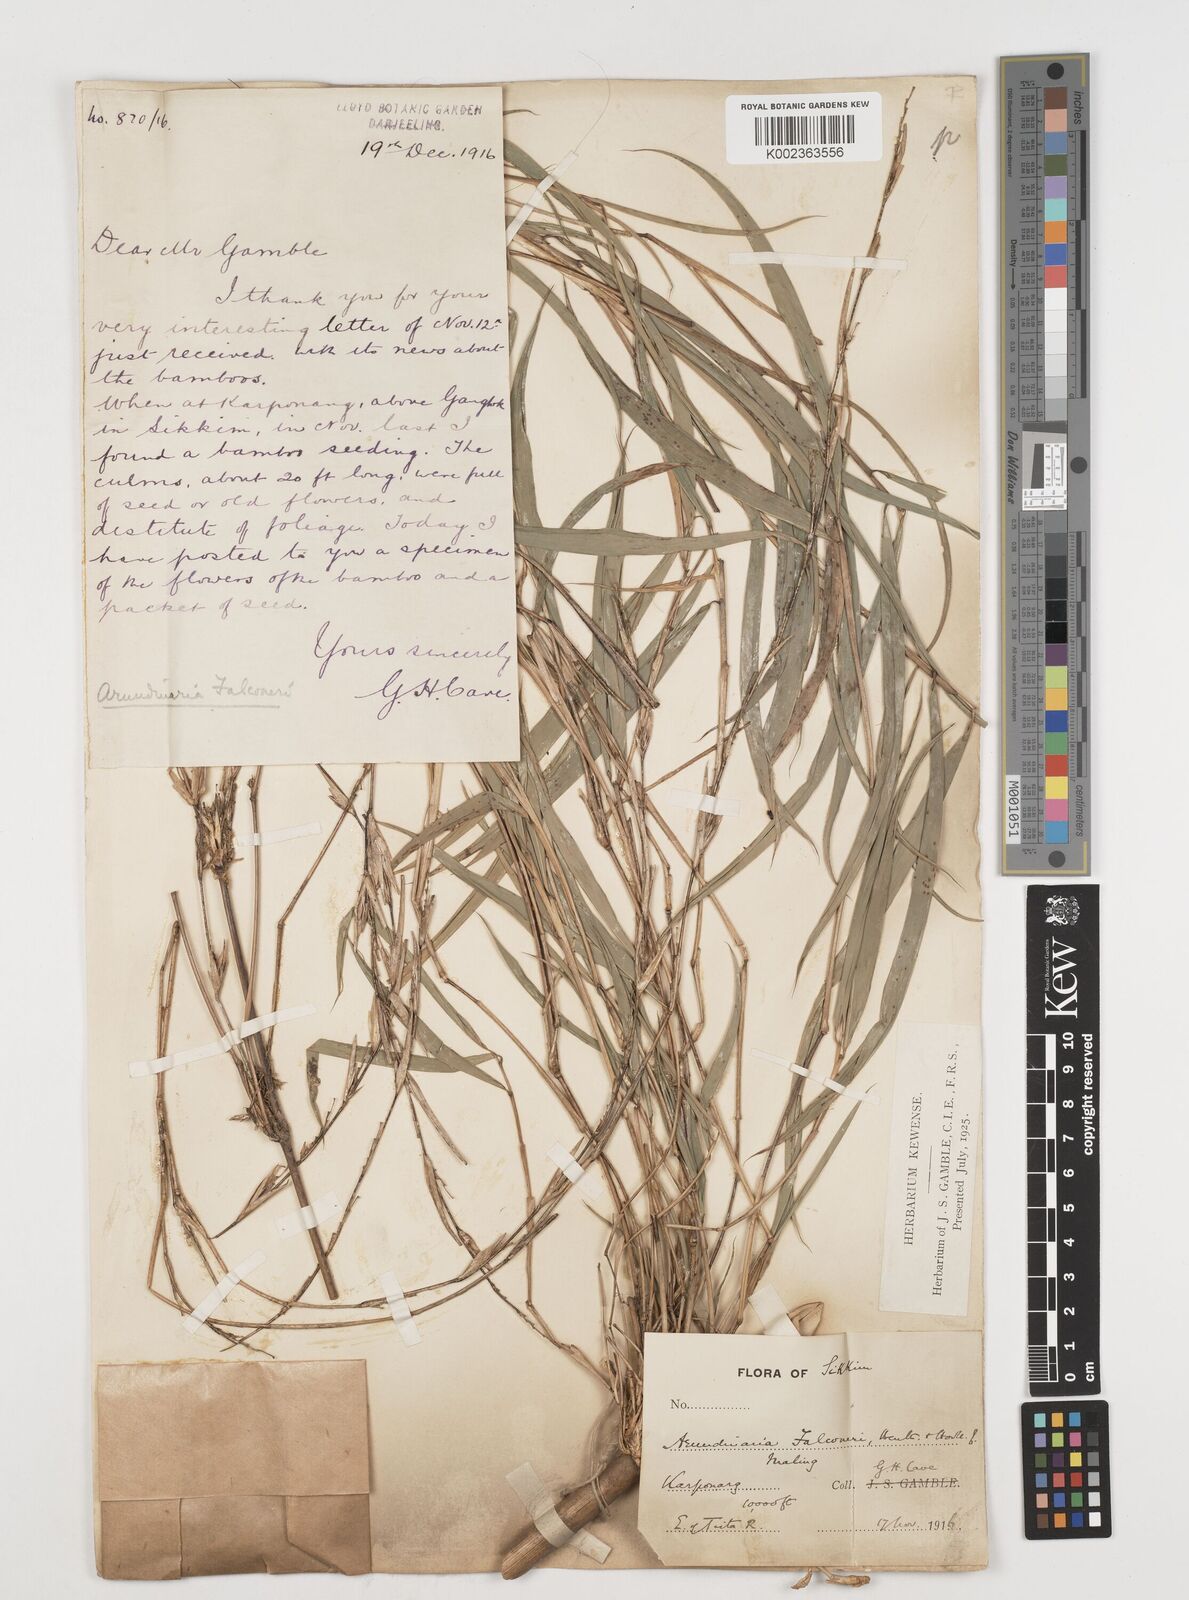 No. 820/16.
LLOYD BOTANIC GARDEN
DARJEELING.
19th Dec. 1916
Dear Mr Gamble
I thank you for your
very interesting letter of Nov. 12th
just received. with its news about
the bamboos.
When at Karponang, above Gangtok
in Sikkim, in Nov. last I
found a bamboo seeding. The
culms, about 20 ft long, were full
of seed or old flowers, and
destitute of foliage. Today I
have posted to you a specimen
of the flowers of the bamboo and a
packet of seed.
Yours sincerely
G. H. Cave.
Arundinaria Falconeri
ROYAL BOTANIC GARDENS KEW
K002363556
HERBARIUM KEWENSE.
Herbarium of J. S. GAMBLE, C.I.E., F.R.S.,
Presented July, 1925.
FLORA OF Sikkim
No.
Arundinaria Falconeri, Benth. & Hook. f.
Maling
G. H. Cave
Karponang
Coll. J. S. GAMBLE.
10,000 ft
E. of Tista R.
17 Nov. 1916.
Density
Don Williams
M001051
centimeters
Royal Botanic Gardens
Kew
0 1 2 3 4 5 6 7 8 9 10
cm
copyright reserved